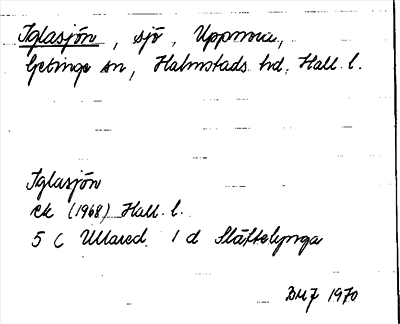 Iglasjön, sjö, Uppmna,
Getinge sn, Halmstads hd, Hall. l.
Iglasjön
ek (1968) Hall. l.
5 C Ullared 1 d Slättelynga
BMJ 1970